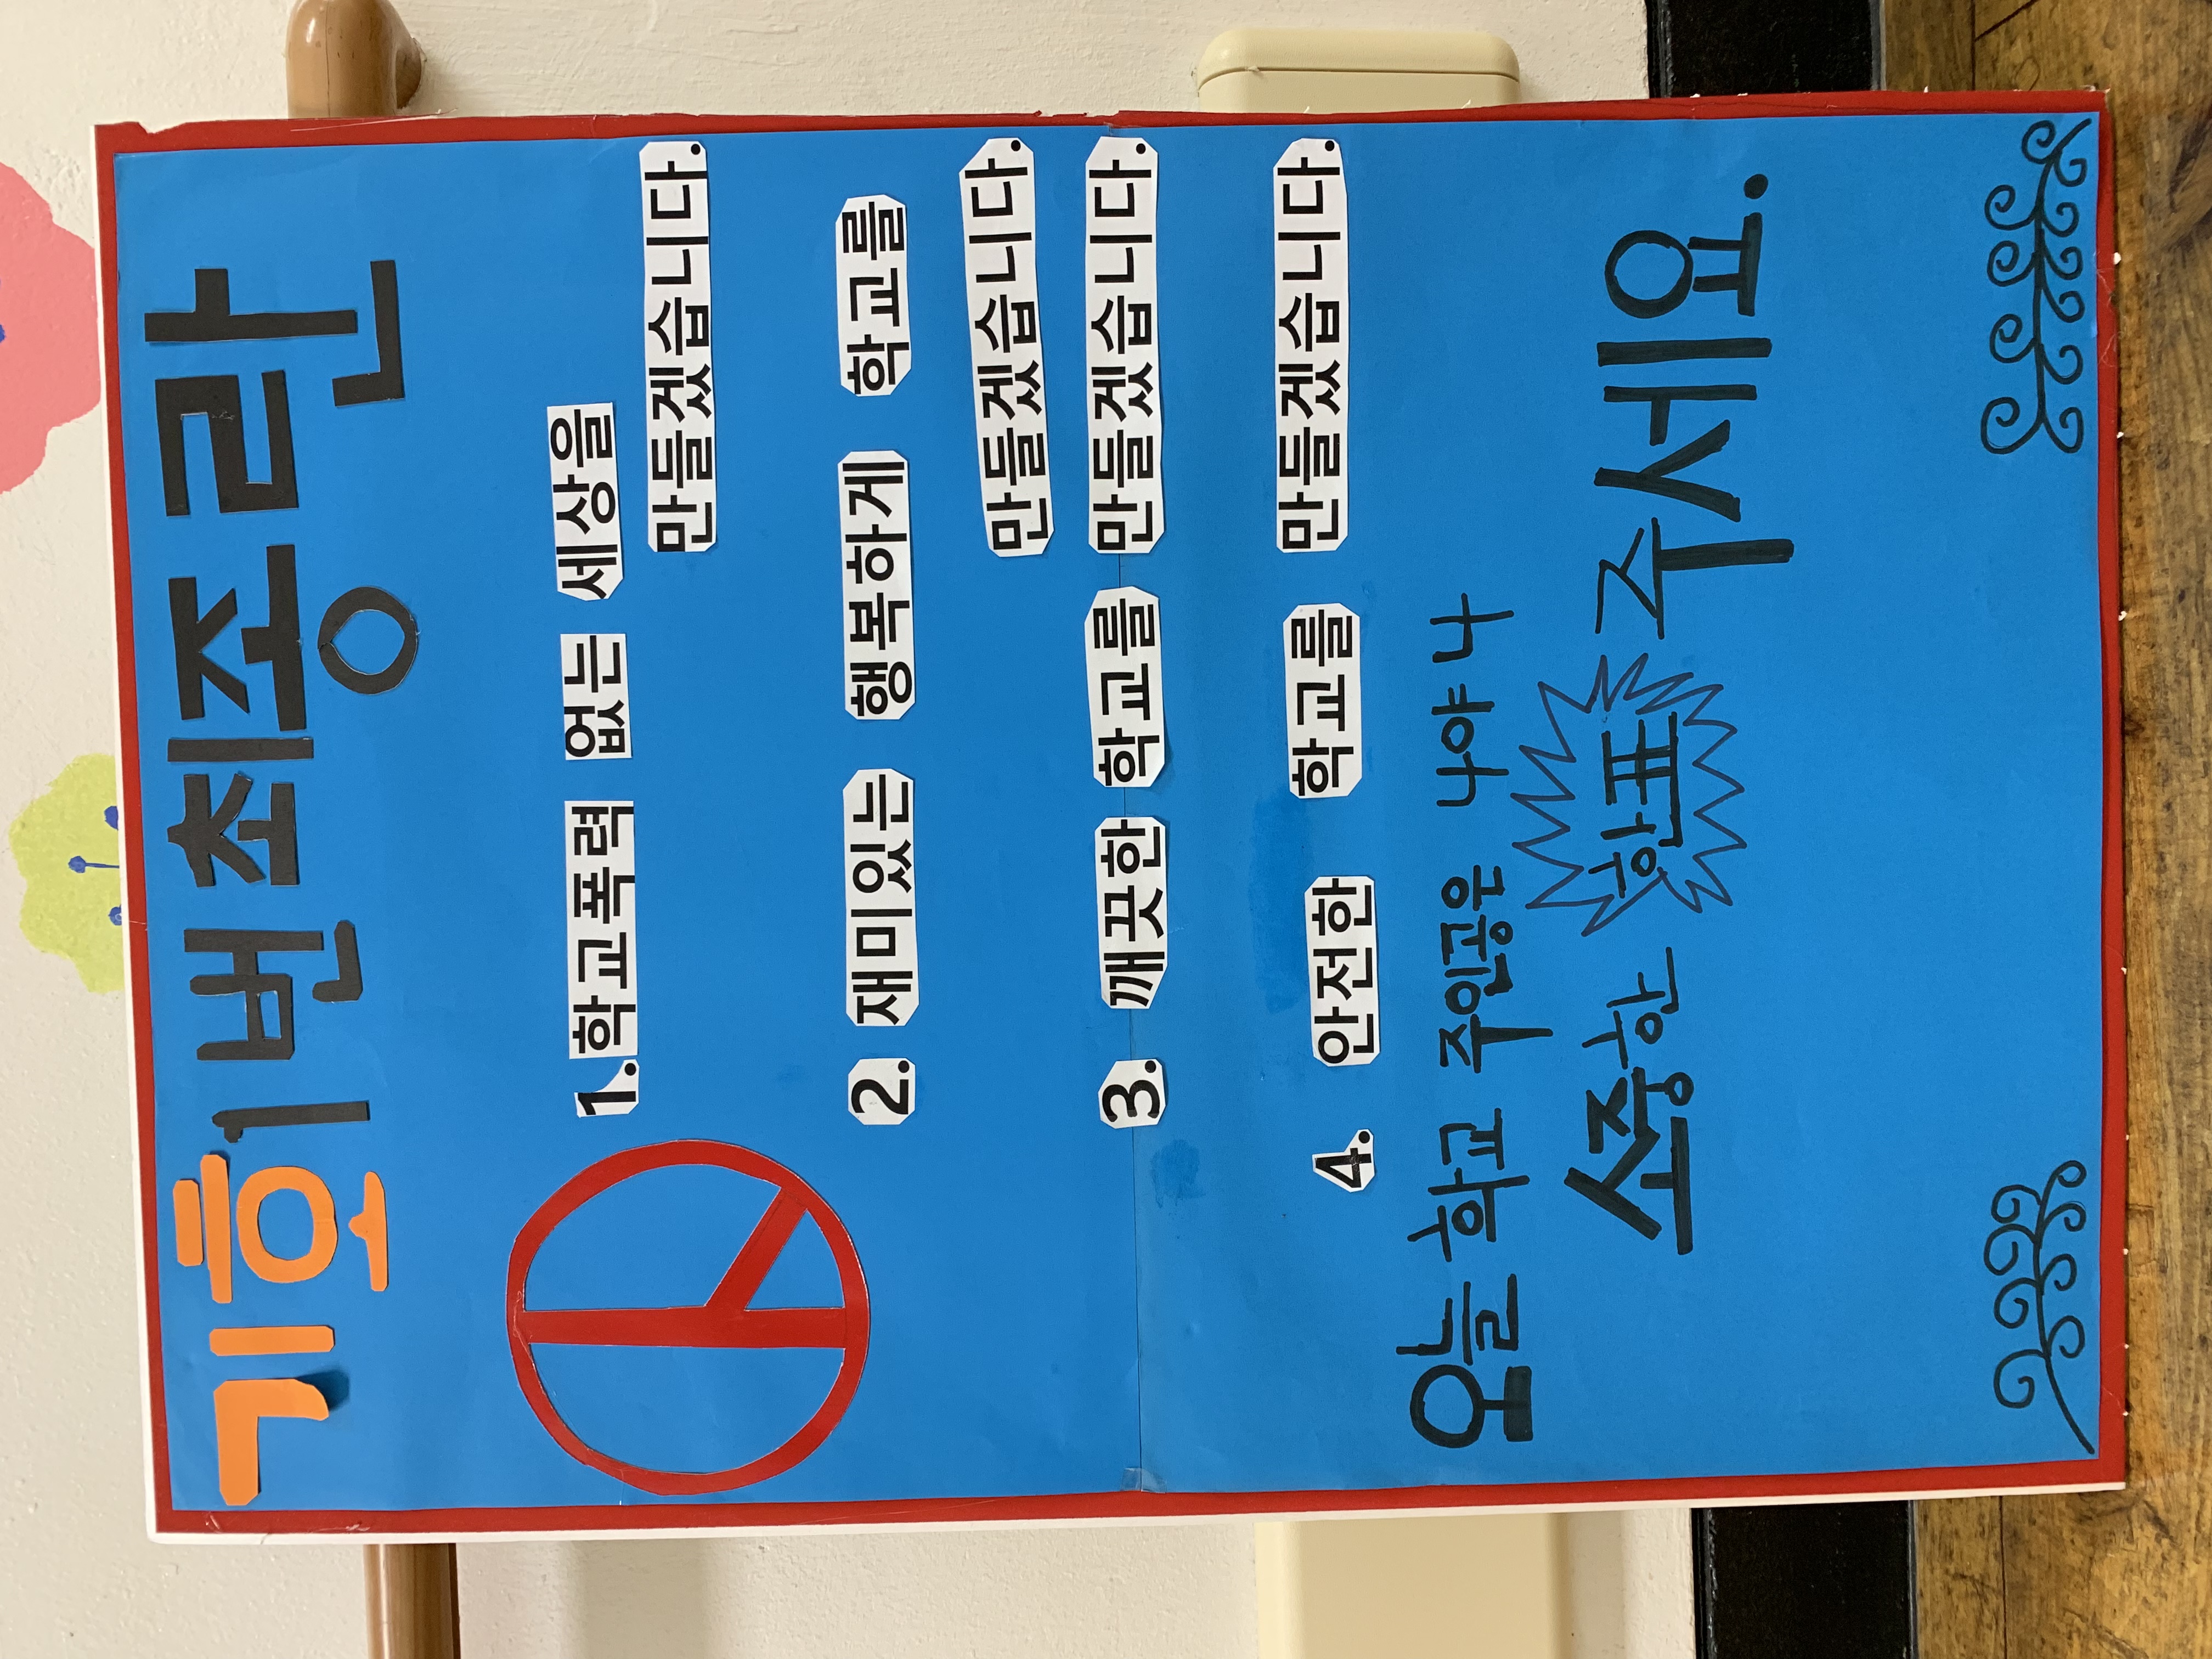 기호1번 최종란
1. 학교폭력 없는 세상을
만들겠습니다.
2. 재미있는 행복하게 학교를
만들겠습니다.
3. 깨끗한 학교를 만들겠습니다.
4. 안전한 학교를 만들겠습니다.
오늘 학교 주인공은 나야 나
소중한 한표 주세요.